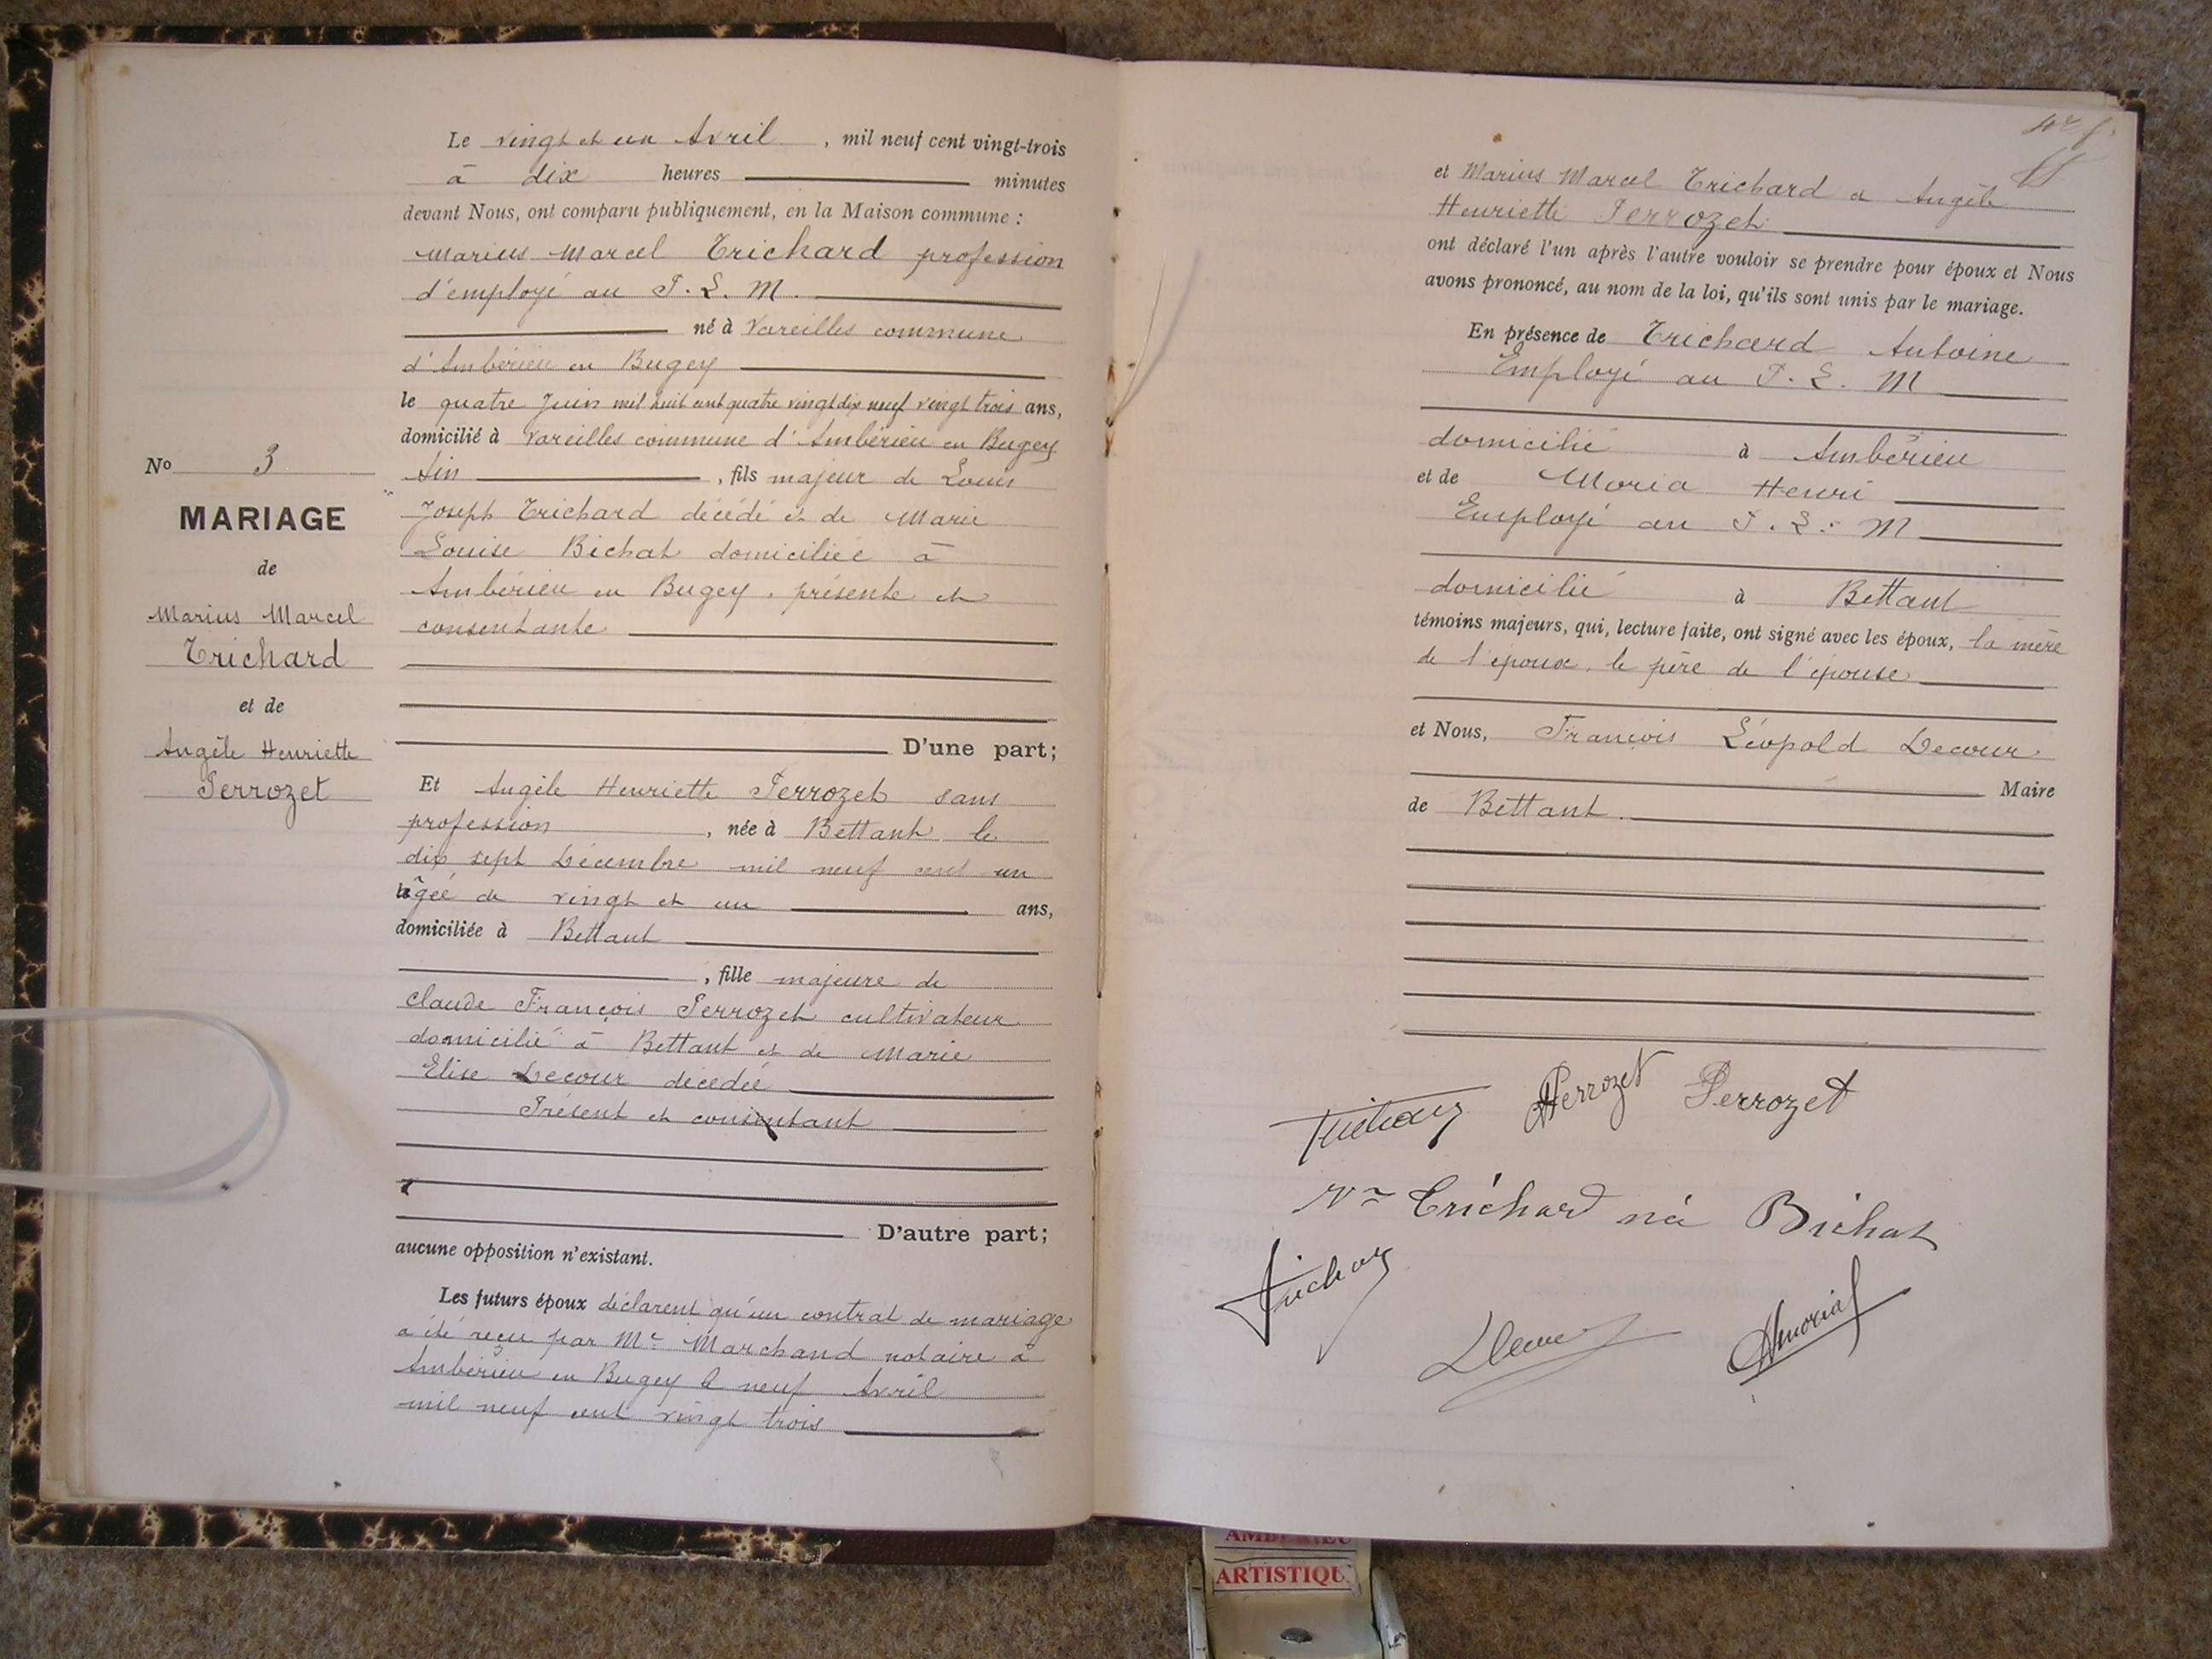 Le vingt et un Avril , mil neuf cent vingt-trois
à dix heures minutes
devant Nous, ont comparu publiquement, en la Maison commune :
Marius Marcel Trichard profession
d'employé au P. L. M.
né à Vareilles commune
d'Ambérieu en Bugey
le quatre Juin mil huit cent quatre vingt dix neuf vingt trois ans,
domicilié à Vareilles commune d'Ambérieu en Bugey
Ain , fils majeur de Louis
Joseph Trichard décédé et de Marie
Louise Bichat domiciliée à
Ambérieu en Bugey. présente et
consentante
D'une part;
No 3
MARIAGE
de
Marius Marcel
Trichard
et de
Angèle Henriette
Perrozet
Et Angèle Henriette Perrozet sans
profession , née à Bettant le
dix sept Décembre mil neuf cent un
âgée de vingt et un ans,
domiciliée à Bettant
, fille majeure de
Claude François Perrozet cultivateur
domicilié à Bettant et de Marie
Elise Decour décédée
Présent et consentant
D'autre part;
aucune opposition n'existant.
Les futurs époux déclarent qu'un contrat de mariage
a été reçu par Me Marchand notaire à
Ambérieu en Bugey le neuf Avril
mil neuf cent vingt trois
et Marius Marcel Trichard a Angèle
Henriette Perrozet
ont déclaré l'un après l'autre vouloir se prendre pour époux et Nous
avons prononcé, au nom de la loi, qu'ils sont unis par le mariage.
En présence de Trichard Antoine
Employé au P. L. M
domicilié à Ambérieu
et de Moria Henri
Employé au P. L. M
domicilié à Bettant
témoins majeurs, qui, lecture faite, ont signé avec les époux, la mère
de l'époux, le père de l'épouse
et Nous, François Léopold Decour
Maire
de Bettant.
Trichard APerrozet Perrozet
Vve Trichard née Bichat
Trichard
HMoria
ARTISTIQU